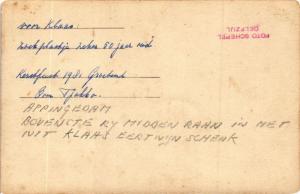 voor Klaas.
zoekplaatje zeker 50 jaar oud
Kerstfeest 1981
Oom
APPINGEDAM
BOVENSTE RY MIDDEN RAAN IN HET
WIT KLAAS EERTWYN SCHENK
FOTO SCHEPEL
DELFZIJL